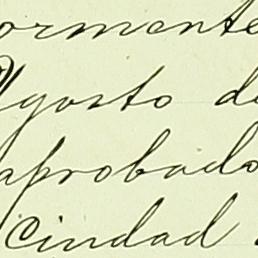 ormente
Agosto de
aprobado
Ciudad